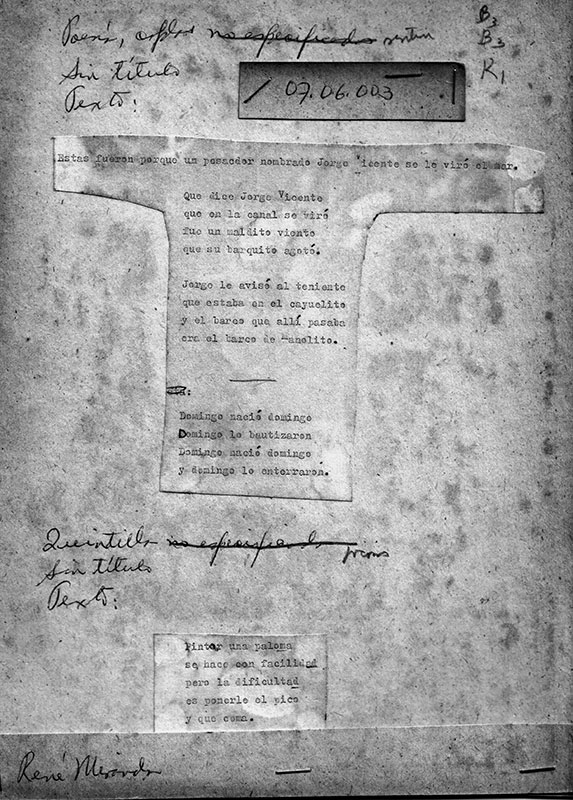 Poesía, coplas no especificadas
B3
B3
R1
Sin título
Texto:
07.06.003
Estas fueron porque un pescador nombrado Jorge Vicente se le viró el mar.
Que dice Jorge Vicente
que en la canal se viró
fue un maldito viento
que su barquito agotó.
Jorge le avisó al teniente
que estaba en el cayuelito
y el barco que allí pasaba
era el barco de Manolito.
Domingo nació domingo
Domingo lo bautizaron
Domingo nació domingo
y domingo lo enterraron.
Quintilla no especificada
Sin título
Texto:
Pintar una paloma
se hace con facilidad
pero la dificultad
es ponerle el pico
y que coma.
René Miranda